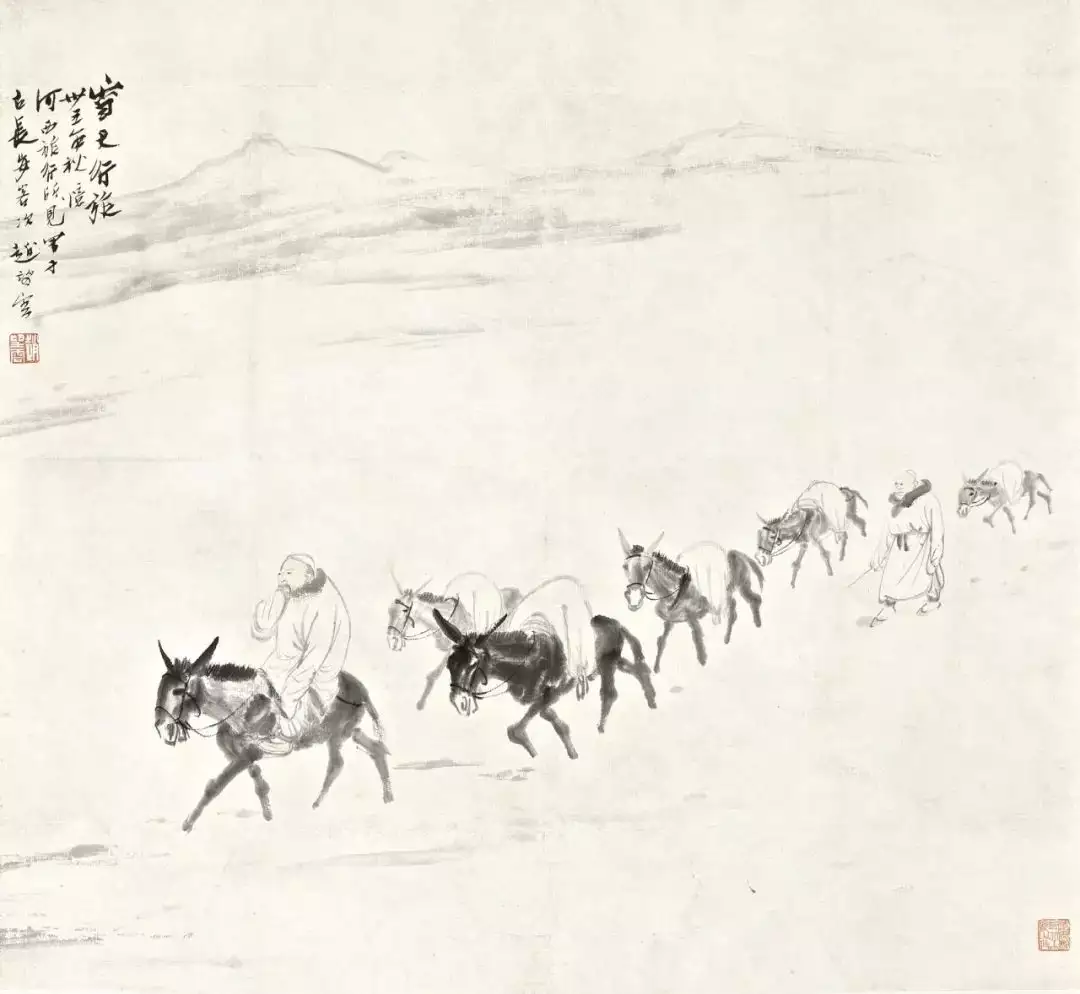 雪天行旅
卅五年秋憶
河西旅行所見寫于
古長安客次趙望雲